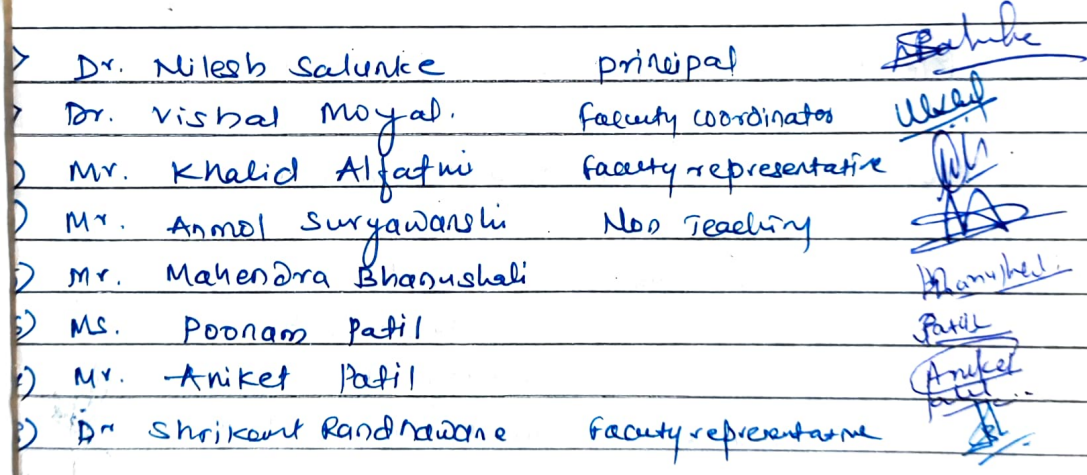 Dr. Nilesh Salunke principal
Dr. Vishal Moyal. faculty coordinator
Mr. Khalid Alfatmi faculty representative
Mr. Anmol Suryawanshi Non Teaching
Mr. Mahendra Bhanushali Bhanushali
Ms. Poonam Patil Patil
Mr. Aniket Patil Aniket Patil
Dr Shrikant Randhawane faculty representative